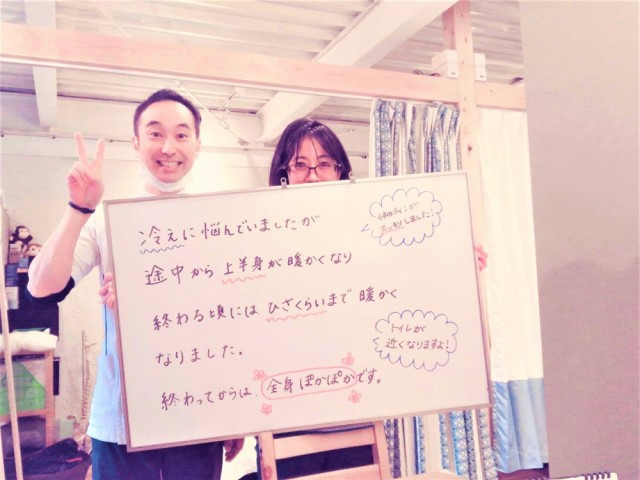 冷えに悩んでいましたが
途中から上半身が暖かくなり
終わる頃にはひざくらいまで暖かく
なりました。
終わってからは、全身ぽかぽかです。
スッキリしました!
トイレが
近くなりますよ!